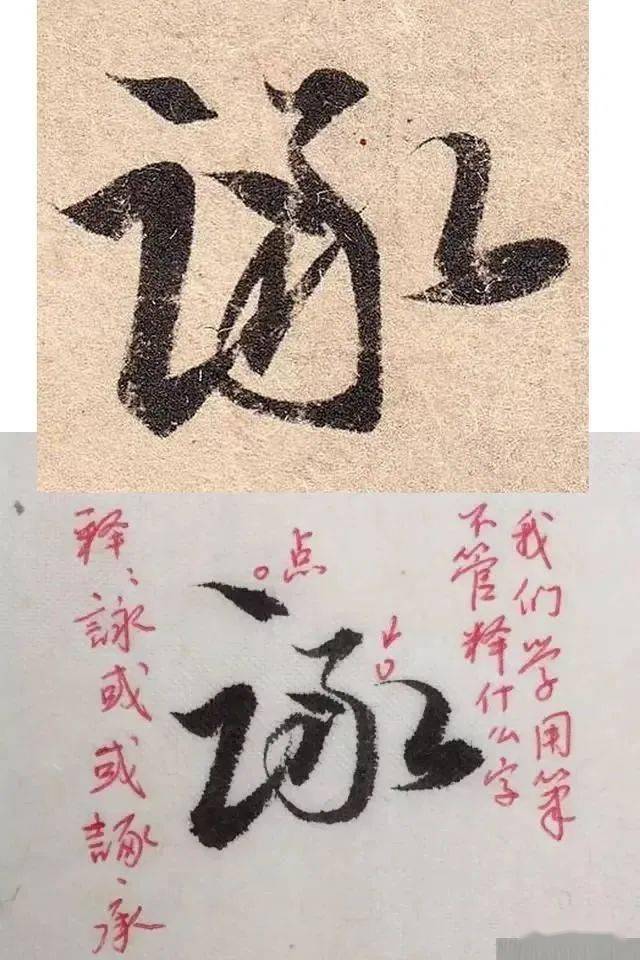 我们学用筆
不管释什么字
点
释：詠或或諑、承